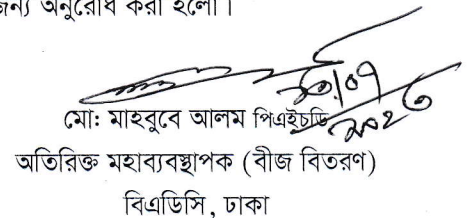 জন্য অনুরোধ করা হলো।
মো: মাহবুবে আলম পিএইচডি
অতিরিক্ত মহাব্যবস্থাপক (বীজ বিতরণ)
বিএডিসি, ঢাকা